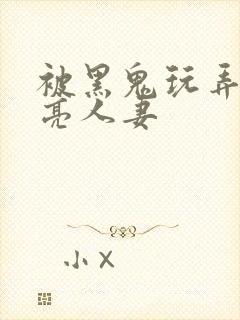 被黑鬼玩弄
亮人妻
小x